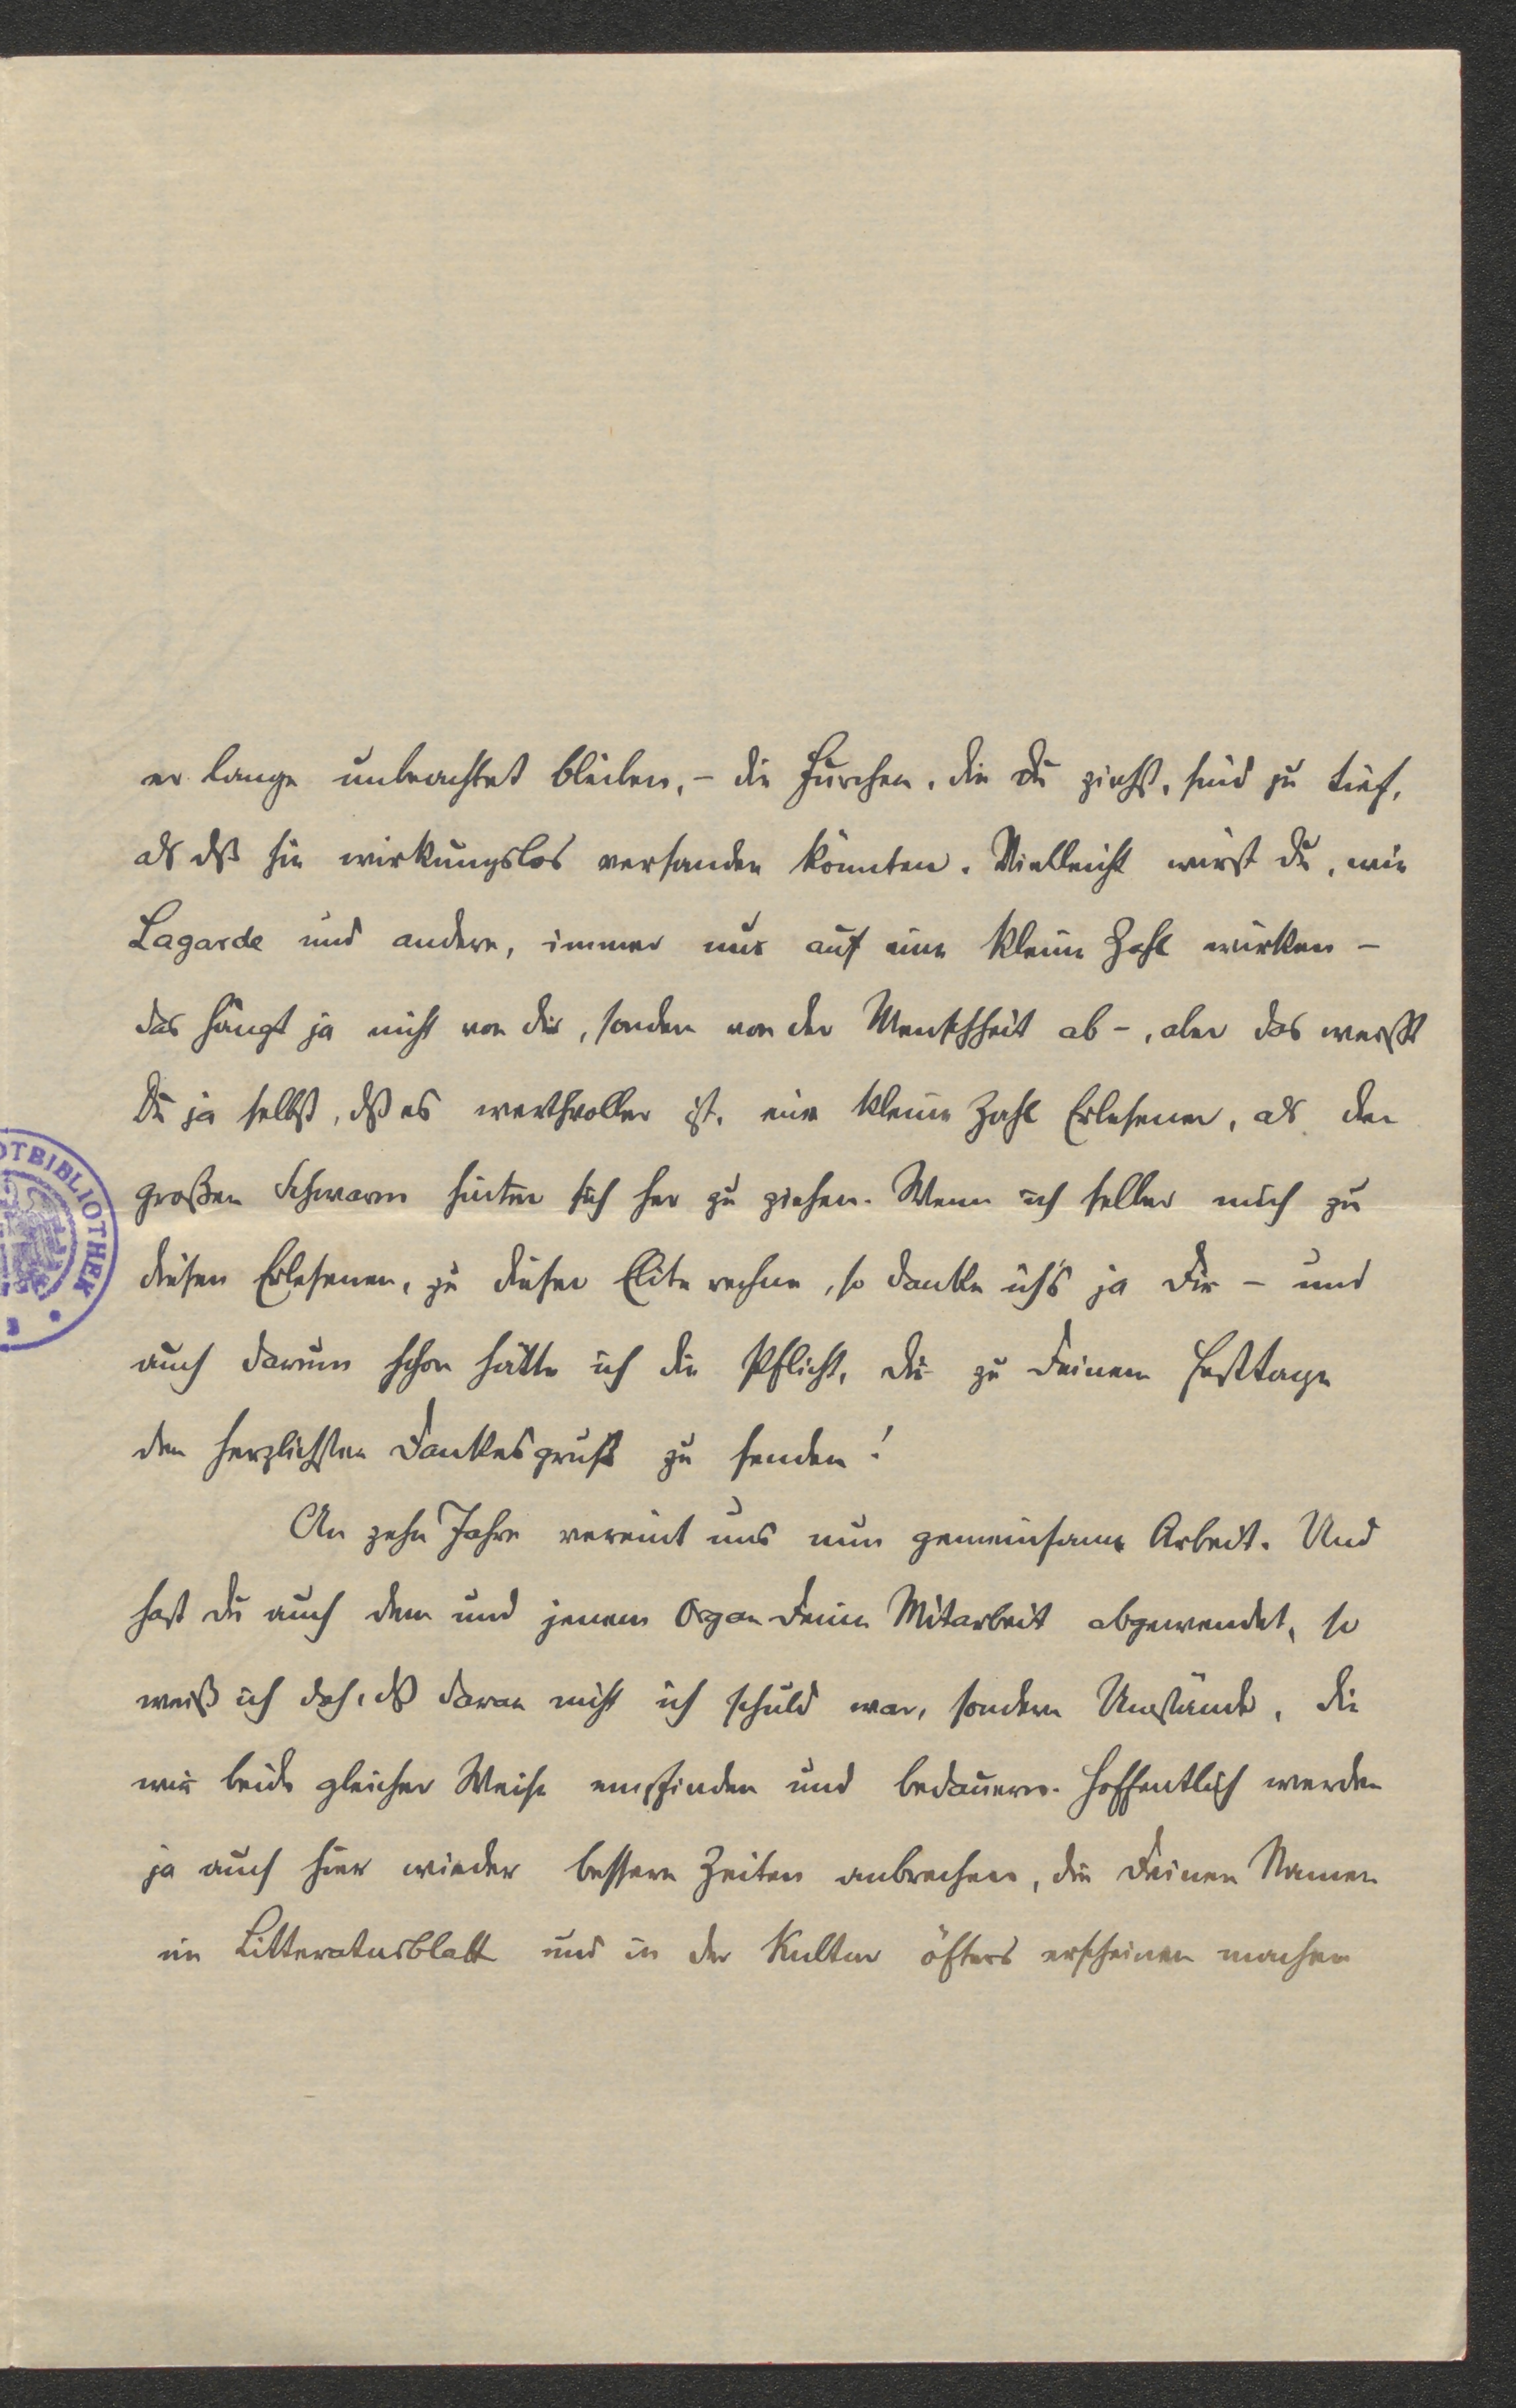 er lange unbeachtet bleiben, – die Furchen, die Du ziehst, sind zu tief,
als dß sie wirkungslos versanden könnten. Vielleicht wirst Du, wie
Lagarde und andere, immer nur auf eine kleine Zahl wirken –
das hängt ja nicht von dir, sondern von der Menschheit ab –, aber das weißt
Du ja selbst, dß es werthvoller ist, eine kleine Zahl Erlesener, als den
großen Schwarm hinter sich her zu ziehen. Wenn ich selber mich zu
diesen Erlesenen, zu dieser Elite rechne, so danke ich's ja Dir – und
auch darum schon hätte ich die Pflicht, Dir zu Deinem Festtage
den herzlichsten Dankesgruß zu senden!
An zehn Jahre vereint uns nun gemeinsame Arbeit. Und
hast Du auch dem und jenem Organ Deine Mitarbeit abgewendet, so
weiß ich doch, dß daran nicht ich schuld war, sondern Umstände, die
wir beide gleicher Weise empfinden und bedauern. Hoffentlich werden
ja auch hier wieder bessere Zeiten anbrechen, die Deinen Namen
im Litteraturblatt und in der Kultur öfters erscheinen machen
DTBIBLIOTHEK